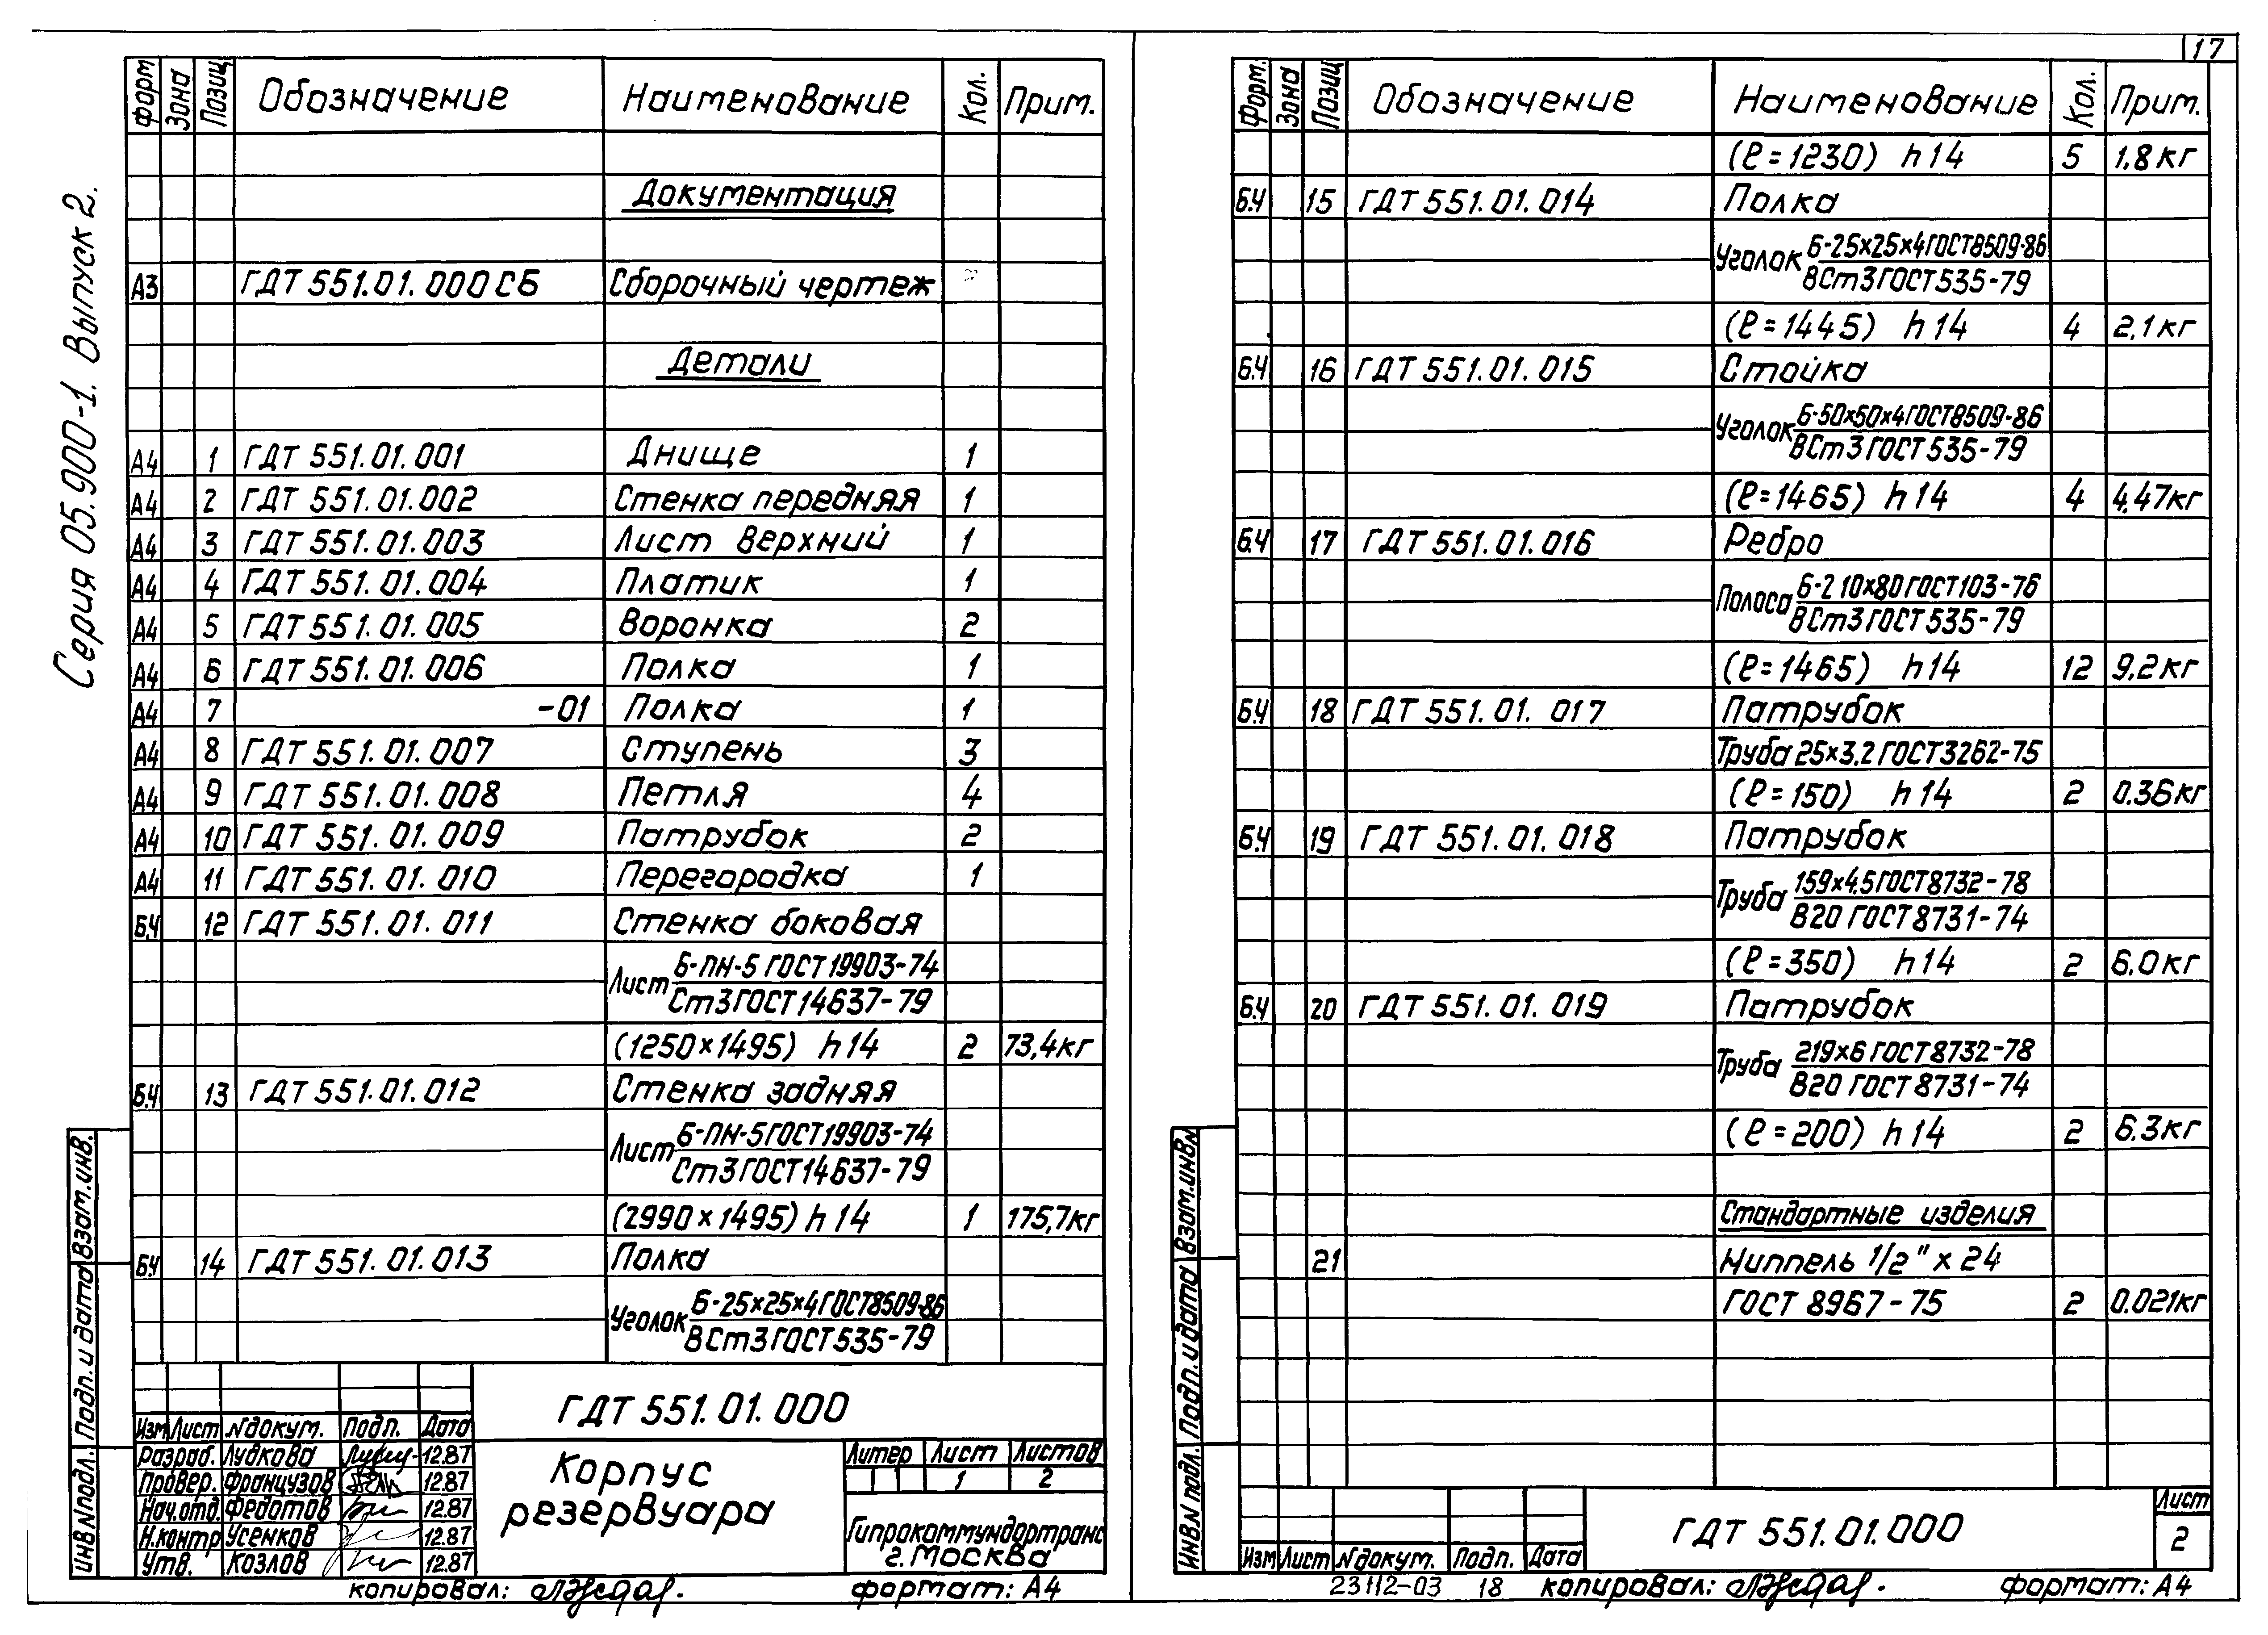 17
Серия 05.900-1. Выпуск 2.
Форм Зона Позиц Обозначение Наименование Кол. Прим.
Документация
А3 ГДТ 551.01.000СБ Сборочный чертеж
Детали
А4 1 ГДТ 551.01.001 Днище 1
А4 2 ГДТ 551.01.002 Стенка передняя 1
А4 3 ГДТ 551.01.003 Лист верхний 1
А4 4 ГДТ 551.01.004 Платик 1
А4 5 ГДТ 551.01.005 Воронка 2
А4 6 ГДТ 551.01.006 Полка 1
А4 7 -01 Полка 1
А4 8 ГДТ 551.01.007 Ступень 3
А4 9 ГДТ 551.01.008 Петля 4
А4 10 ГДТ 551.01.009 Патрубок 2
А4 11 ГДТ 551.01.010 Перегородка 1
Б.Ч 12 ГДТ 551.01.011 Стенка боковая
Лист Б-ПН-5 ГОСТ 19903-74
Ст3 ГОСТ 14637-79
(1250×1495) h14 2 73,4кг
Б.Ч 13 ГДТ 551.01.012 Стенка задняя
Лист Б-ПН-5 ГОСТ 19903-74
Ст3 ГОСТ 14637-79
(2990×1495) h14 1 175,7кг
Б.Ч 14 ГДТ 551.01.013 Полка
Уголок Б-25×25×4 ГОСТ 8509-86
ВСт3 ГОСТ 535-79
ГДТ 551.01.000
Изм Лист №докум. Подп. Дата
Разраб. Лудкова 12.87
Провер. Французов 12.87
Нач.отд. Федотов 12.87
Н.контр Усенков 12.87
Утв. Козлов 12.87
Корпус
резервуара
Литер Лист Листов
1 2
Гипрокоммундортранс
г. Москва
Инв №подл. Подп. и дата Взам.инв.
копировал: формат: А4
Форм. Зона Позиц Обозначение Наименование Кол. Прим.
(ℓ=1230) h14 5 1.8кг
Б.Ч 15 ГДТ 551.01.014 Полка
Уголок Б-25×25×4 ГОСТ 8509-86
ВСт3 ГОСТ 535-79
(ℓ=1445) h14 4 2,1кг
Б.Ч 16 ГДТ 551.01.015 Стойка
Уголок Б-50×50×4 ГОСТ 8509-86
ВСт3 ГОСТ 535-79
(ℓ=1465) h14 4 4,47кг
Б.Ч 17 ГДТ 551.01.016 Ребро
Полоса Б-2 10×80 ГОСТ 103-76
ВСт3 ГОСТ 535-79
(ℓ=1465) h14 12 9,2кг
Б.Ч 18 ГДТ 551.01.017 Патрубок
Труба 25×3,2 ГОСТ 3262-75
(ℓ=150) h14 2 0.36кг
Б.Ч 19 ГДТ 551.01.018 Патрубок
Труба 159×4,5 ГОСТ 8732-78
В20 ГОСТ 8731-74
(ℓ=350) h14 2 6.0кг
Б.Ч 20 ГДТ 551.01.019 Патрубок
Труба 219×6 ГОСТ 8732-78
В20 ГОСТ 8731-74
(ℓ=200) h14 2 6.3кг
Стандартные изделия
21 Ниппель 1/2"×24
ГОСТ 8967-75 2 0.021кг
ГДТ 551.01.000
Лист
2
Изм Лист №докум. Подп. Дата
Инв.№ подл. Подп. и дата Взам.инв№
23112-03 18 копировал: формат: А4